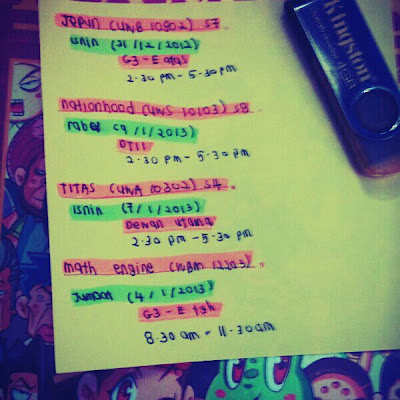 JEPUN (UNB 10802) S7
isnin (31/12/2012)
G3 - E atas
2.30 pm - 5.30 pm
nationhood (UNS 10103) S8
rabu (9/1/2013)
DT11
2.30 pm - 5.30 pm
TITAS (UNA 10302) S4
isnin (7/1/2013)
Dewan utama
2.30 pm - 5.30 pm
math engine (WBM 12203)
Jumaat (4/1/2013)
G3 - E
8.30 am - 11.30 am
Kingston
4GB